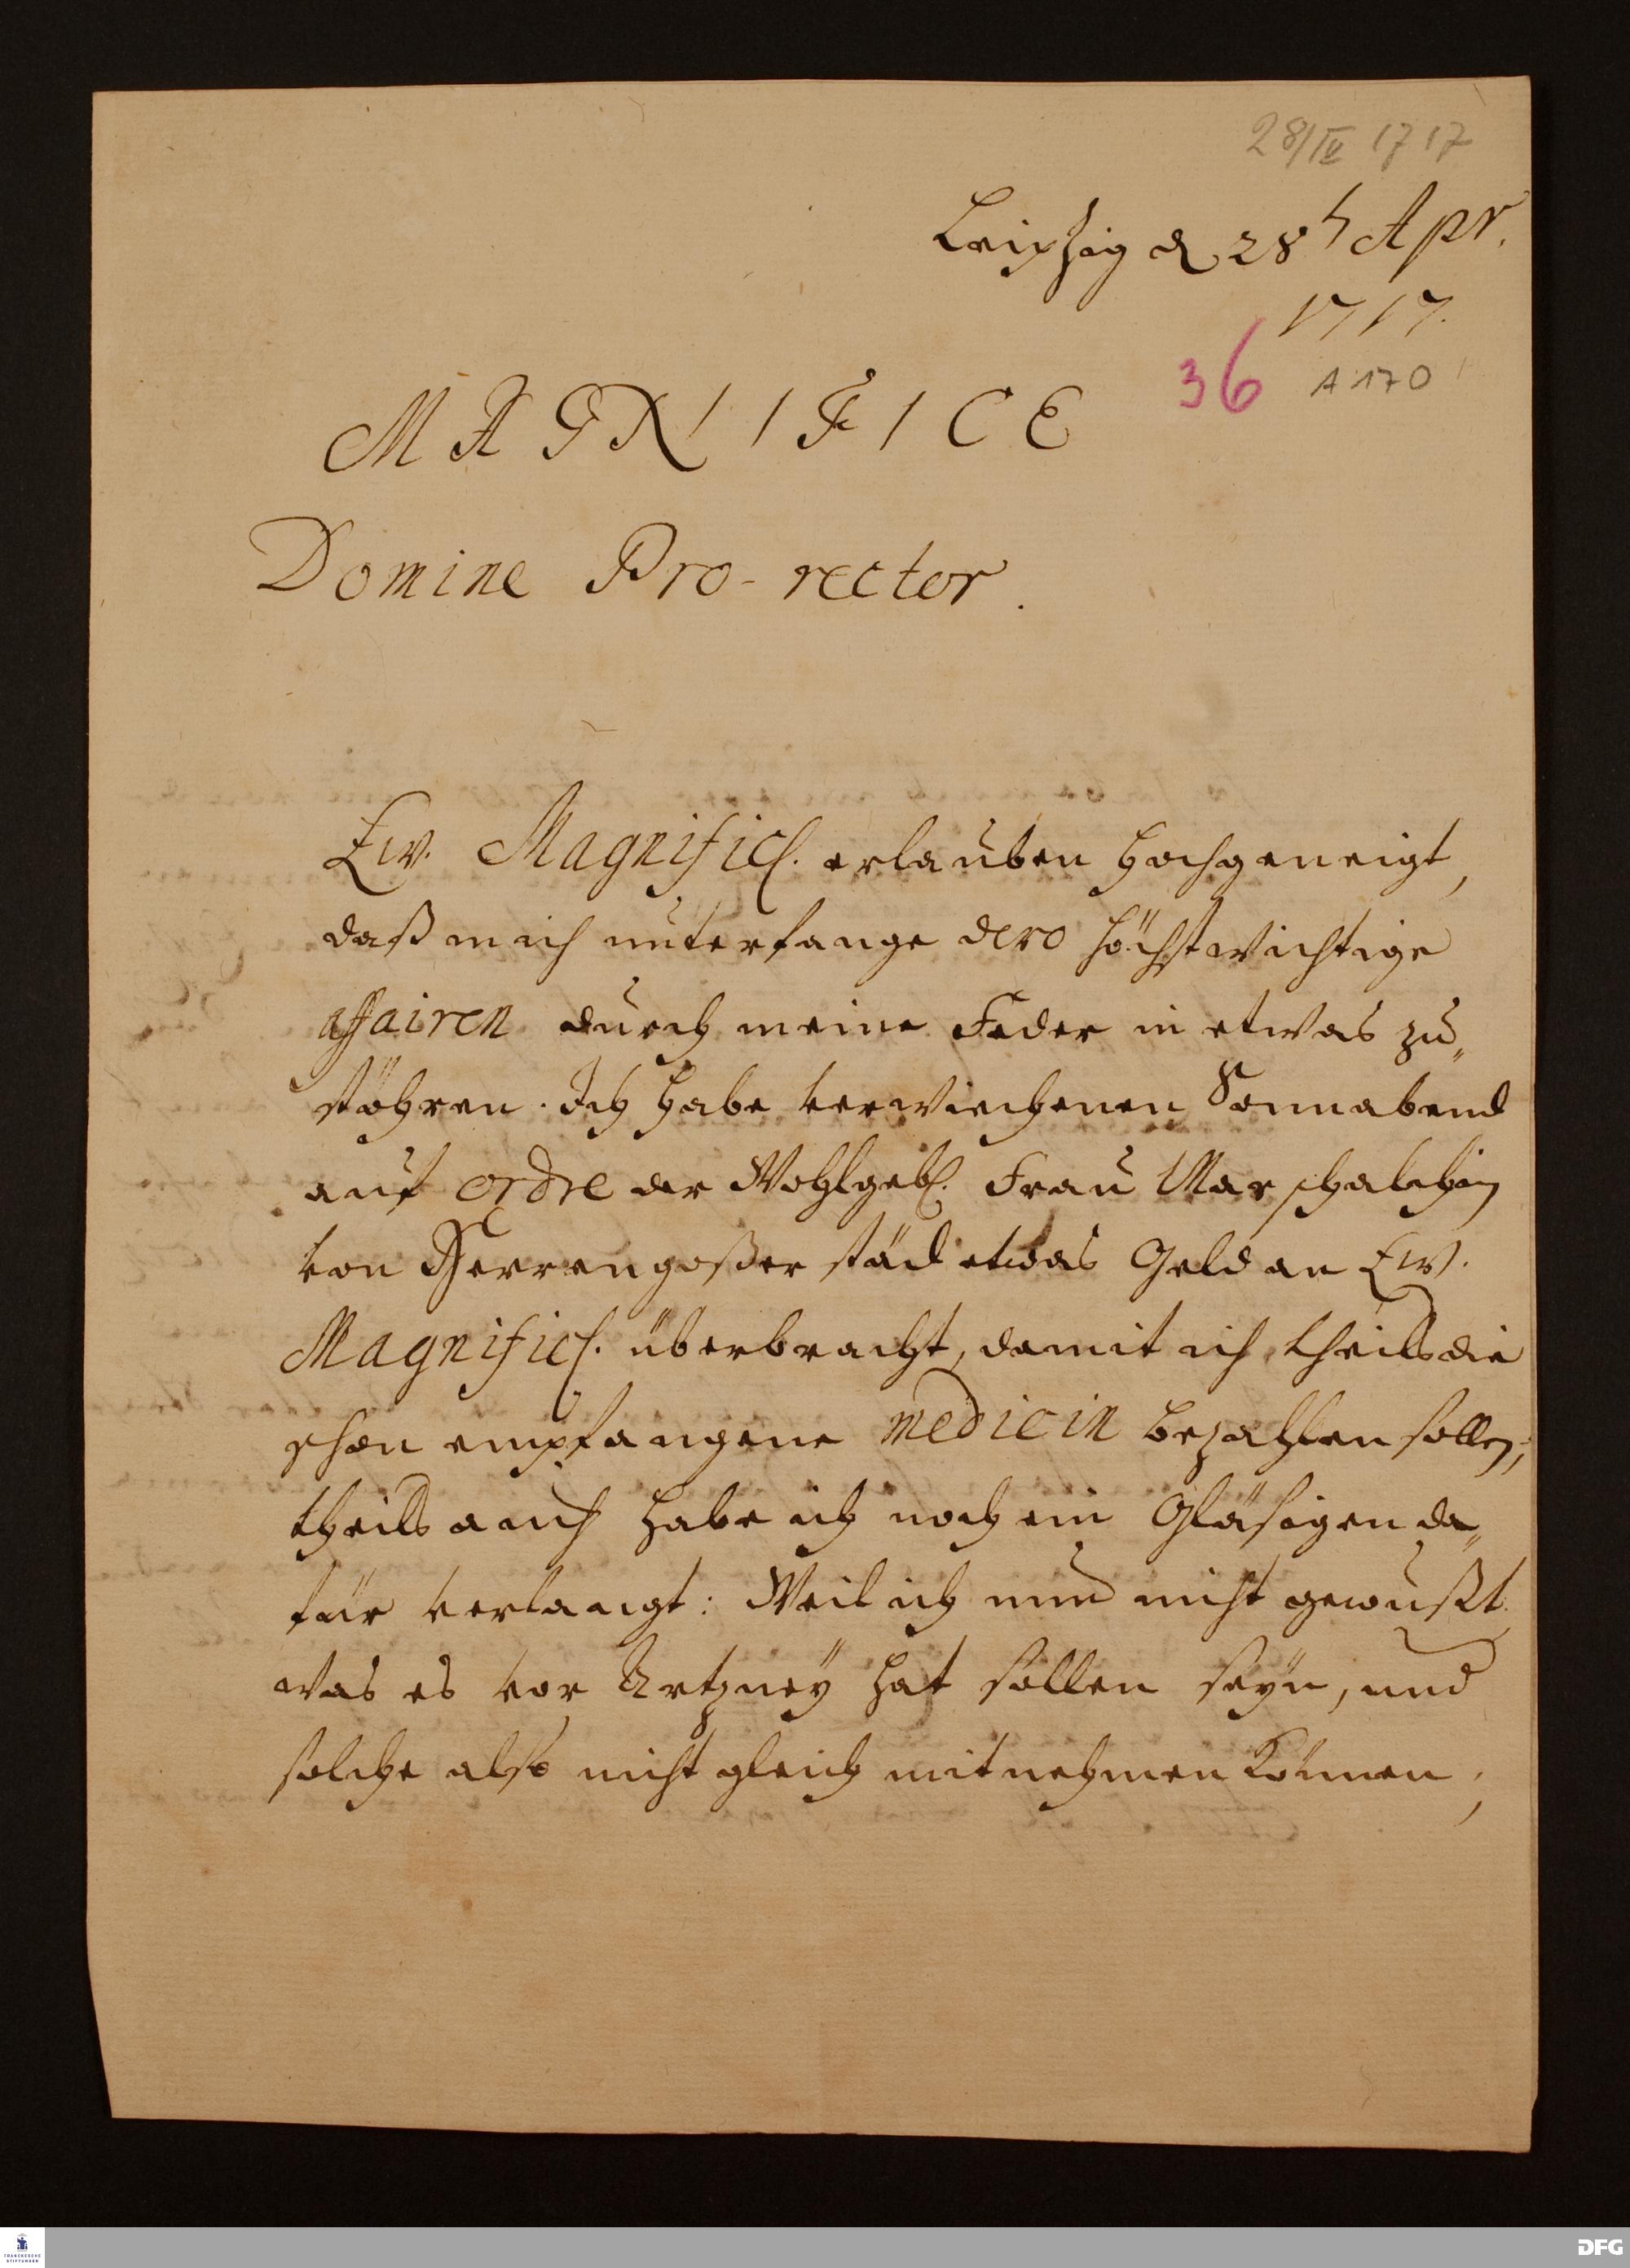 28/IV 1717
Leipzig d 28t Apr.
1717.
36 A 170
MAGNIFICE
Domine Pro-rector.
Ew. Magnific. erlauben hochgeneigt,
daß mich unterfange dero höchstwichtige
affairen durch meine Feder in etwas zu„
stöhren. Ich habe verwichenen Sonnabend
auf ordre der Wohlgeb. Frau Marschalchin
von Herrengoßerstäd etwas Geld an Ew.
Magnific. überbracht, damit ich theils die
schon empfangene medicin bezahlen sollen,
theils auch habe ich noch ein Gläsigen da„
für verlangt: Weil ich nun nicht gewußt
was es vor Artzney hat sollen seyn, und
solche also nicht gleich mitnehmen können,
FRANCKESCHE
STIFTUNGEN
DFG